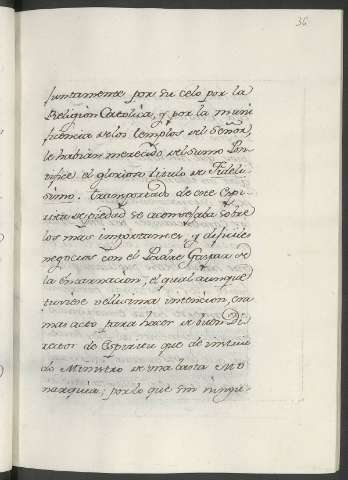 36
juntamente por su celo por la
Religion Catolica, y por la muni
ficencia de los templos del Señor,
le habian merecido del sumo Pon
tifice el glorioso titulo de Fidelis
simo. transportado de este Espi
ritu de piedad se aconsejaba sobre
los mas importantes, y dificiles
negocios con el Padre Gaspar de
la encarnacion, el qual aunque
tuviese bellisima intencion, era
mas acto para hacer de buen Di
rector de Espiritu que de
do Ministro de una basta Mo
narquia; por lo que sin ningu-